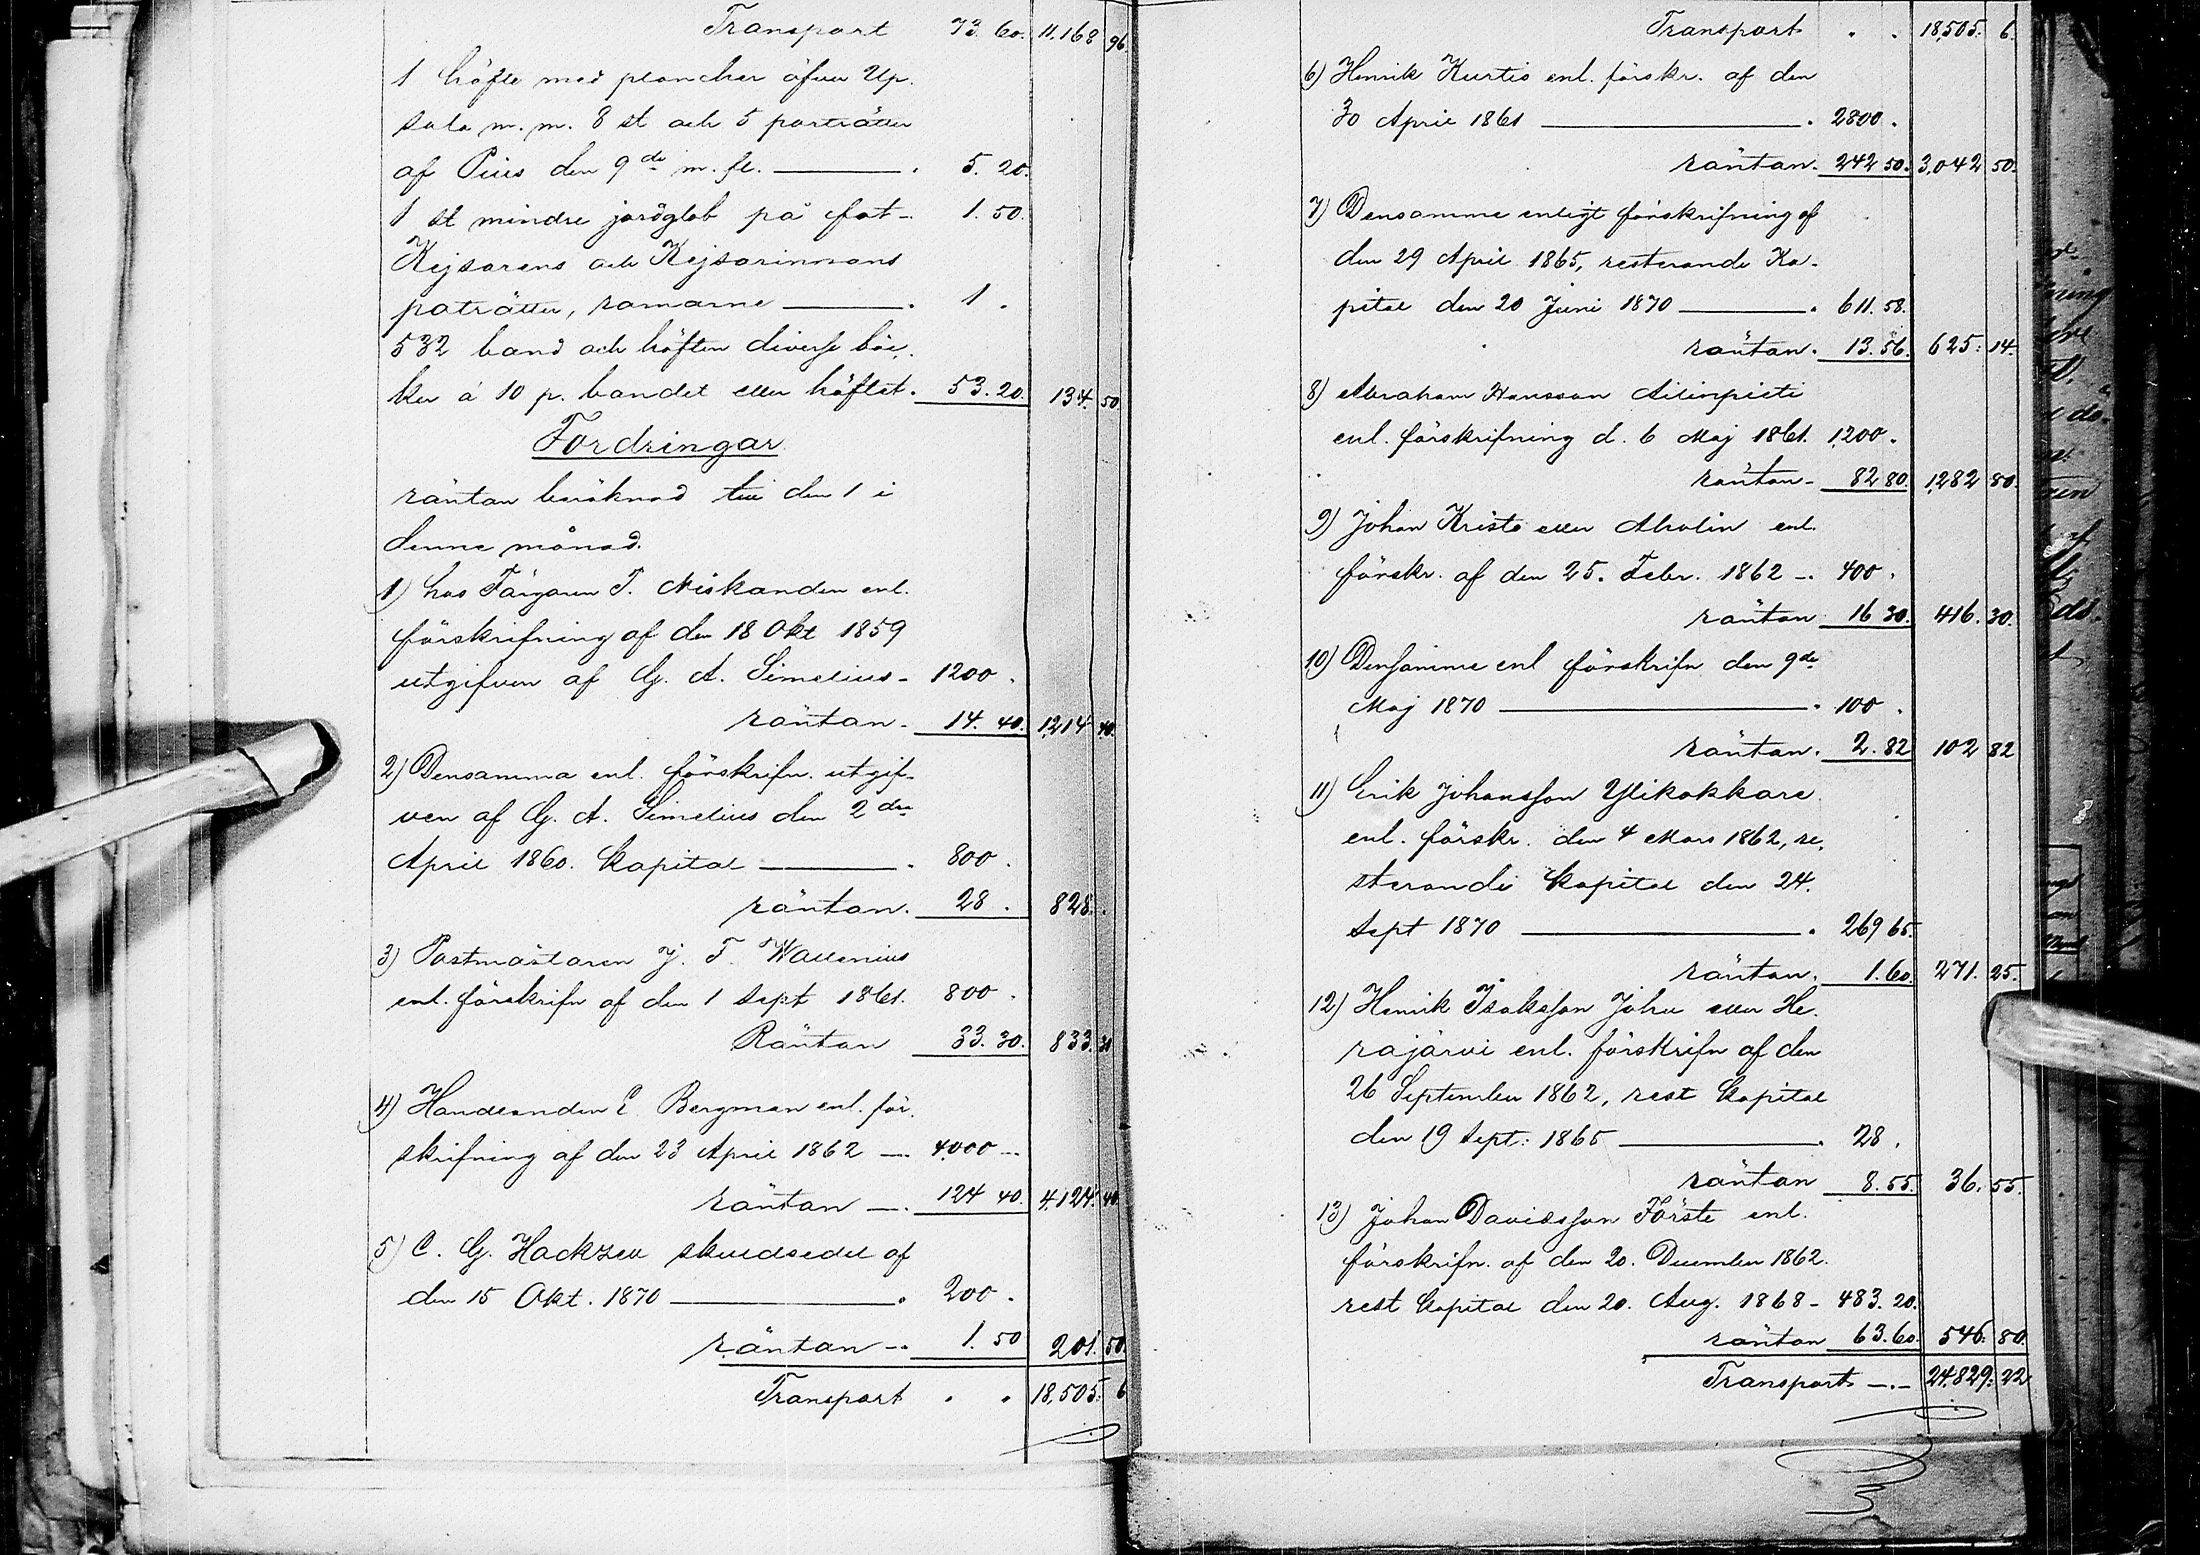 Transport 73. 60. 11.168 96.
1 häfte med plancher öfver Up-
sala m. m. 8 st och 5 porträtter
af Pius den 9de m. fl. 5. 20.
1 st mindre jordglob på fot 1. 50.
Kejsarens och Kejsarinnans
poträtter, ramarne 1.
532 band och häften diverse böc-
ker á 10 p. bandet eller häftet. 53. 20. 134. 50
Fordringar
räntan beräknad till den 1 i
denne månad.
1) hos Färgaren T. Niskanden enl.
förskrifning af den 18 Okt 1859
utgifven af G. A. Simelius 1200.
räntan 14. 40. 1,214 40.
2) Densamma enl. förskrifn. utgif-
ven af G. A. Simelius den 2dre
April 1860. Kapital 800.
räntan. 28. 828.
3) Postmästaren J. F. Wallenius
enl. förskrifn af den 1 Sept 1861. 800.
Räntan 33. 30. 833. 30
4) Handlanden E Bergman enl. för-
skrifning af den 23 April 1862 4,000
räntan 124 40. 4,124. 40
5) C. G. Hackzell skuldsedel af
den 15 Okt. 1870 200.
räntan 1. 50 201. 50.
Transport 18,505. 6
Transport 18,505. 6.
6) Henrik Kurtis enl. förskr. af den
30 April 1861 2800.
räntan. 242 50. 3,042 50.
7) Densamme enligt förskrifning af
den 29 April 1865, resterande Ka-
pital den 20 Juni 1870 611. 58.
räntan. 13. 56. 625. 14.
8) Abraham Hansson Ailinpieti
enl. förskrifning d. 6 Maj 1861. 1,200.
räntan 82 80. 1,282 80.
9) Johan Kristo eller Aholin enl.
förskr. af den 25. Febr. 1862 400.
räntan 16 30. 416. 30.
10) Densamme enl förskrifn den 9de
Maj 1870 100.
räntan. 2. 82 102 82
11) Erik Johansson Ylikokkare
enl. förskr. den 4 Mars 1862, re-
sterande Kapital den 24.
Sept 1870 269 65.
räntan. 1. 60. 271. 25.
12) Henrik Isaksson Juhu eller He-
rajärvi enl. förskrifn af den
26 September 1862, rest Kapital
den 19 Sept: 1865 28.
räntan 8. 55. 36. 55.
13) Johan Davidsson Förste enl.
förskrifn. af den 20. December 1862.
rest Kapital den 20. Aug. 1868 483. 20.
räntan 63. 60. 546. 80.
Transport 24,829. 22